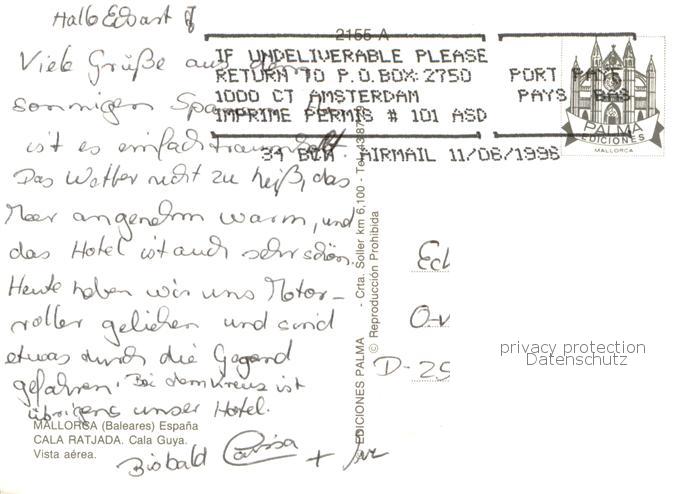 Hallo Eckart
Viele Grüße aus dem
sonnigen Spanien. Es
ist es einfach traumhaft.
Das Wetter nicht zu heiß, das
Meer angenehm warm, und
das Hotel ist auch sehr schön.
Heute haben wir uns Motor-
roller geliehen und sind
etwas durch die Gegend
gefahren. Bei dem Kreuz ist
übrigens unser Hotel.
Bisbald
+
MALLORCA (Baleares) España
CALA RATJADA. Cala Guya.
Vista aérea.
2155-A
IF UNDELIVERABLE PLEASE
RETURN TO P.O.BOX:2750
1000 CT AMSTERDAM
IMPRIME PERMIS # 101 ASD
PORT PAYE
PAYS BAS
AIRMAIL 11/06/1996
PALMA
EDICIONES
MALLORCA
EDICIONES PALMA - Crta. Soller km 6,100 - Tel.
© Reproducción Prohibida
O-
D-
privacy protection
Datenschutz